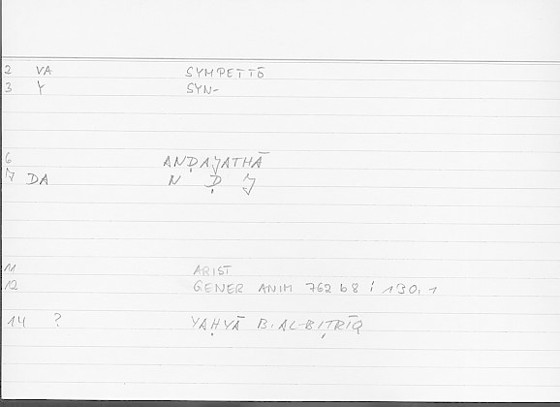 2 VA SYMPETTŌ
3 Y SYN-
6 ANḌAJATHĀ
7 DA N Ḍ J
11 ARIST
12 GENER ANIM 762 b8 / 130,1
14 ? YAḤYĀ B. AL-BIṬRĪQ